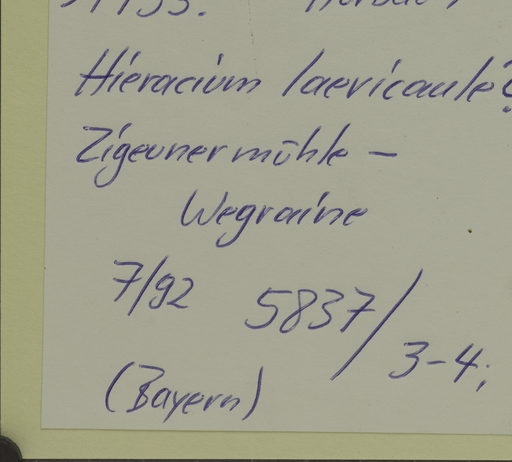 Hieracium laevicaule?
Zigeunermühle –
Wegraine
7/92 5837/
3-4;
(Bayern)